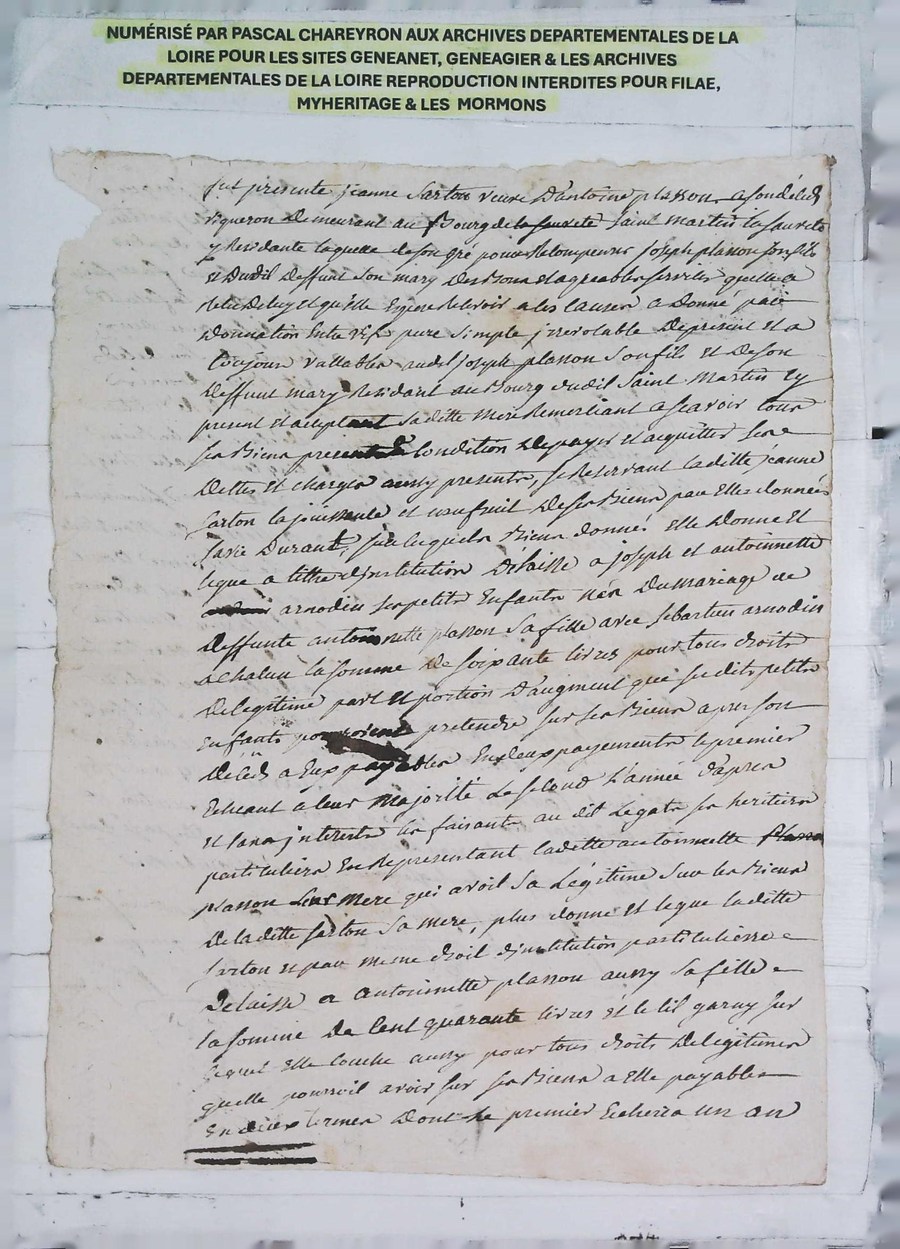 NUMÉRISÉ PAR PASCAL CHAREYRON AUX ARCHIVES DEPARTEMENTALES DE LA
LOIRE POUR LES SITES GENEANET, GENEAGIER & LES ARCHIVES
DEPARTEMENTALES DE LA LOIRE REPRODUCTION INTERDITES POUR FILAE,
MYHERITAGE & LES MORMONS
fut presente jeanne Sarton veuve D'antoine plasson
vigneron Demeurant au Bourg de la sauveté Saint martin la sauveté
y Residante laquelle de son gré joseph plasson son fils
et Dudit Deffunt son mary Des Bons et agreables services quelle a
Relu De luy et qu'elle Espere Relevoir a les causes a Donné par
Donnation Entre vifs pure Simple jrrevocable Depresent et a
toujours vallables audit joseph plasson son fils et De son
Deffunt mary Residant au Bourg dudit Saint Martin Cy
present et aceptant sa ditte mere Remerciant a scavoir tous
ses Biens presents a Condition De payer et acquitter ses
Dettes et charges aussy presents, se Reservant laditte jeanne
sarton la jouissance et usufruit De ses Biens par Elle donnés
sa vie Durant, sur lesquels Biens donnés Elle Donne et
legue a tiltre d'jnstitution Delaisse a joseph et antoinnette
arnodin ses petits Enfants nés Du mariage de
Deffunte antoinnette plasson sa fille avec sebastien arnodin
a chacun la somme De soixante livres pour tous droits
De legitime part et portion D'augment que susdits petits
Enfants pretendre sur ses Biens apres son
Décéd a Eux payables En deux payements le premier
Echeant a leur Majorité Le second L'année d'apres
et sans jnterests les faisants au dit Legats ses heritiers
particuliers En Representant laditte antoinnette
plasson Leur Mere qui avoit sa Légitime sur les Biens
De laditte sarton sa mere, plus donne et legue laditte
sarton et par meme droit d'jnstitution particulierre
Delaisse a antoinnette plasson aussy sa fille
la somme De cent quarante livres et le lit garny sur
lequel Elle couche aussy pour tous droits De legitimes
quelle pourroit avoir sur ses Biens a Elle payables
en deux termes Dont le premier Echerra un an